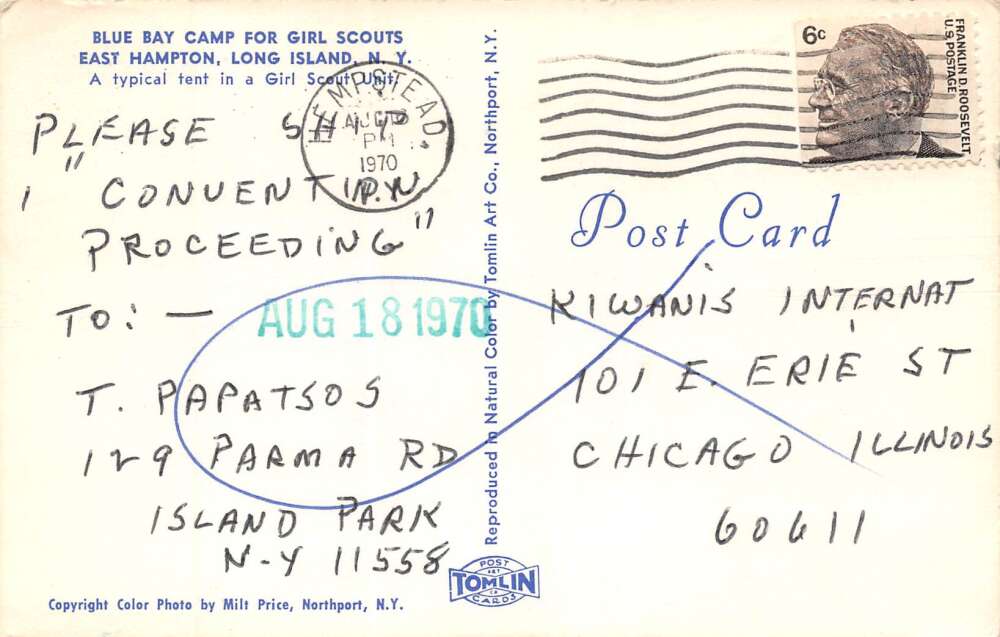 BLUE BAY CAMP FOR GIRL SCOUTS
EAST HAMPTON, LONG ISLAND, N. Y.
A typical tent in a Girl Scout Unit.
PLEASE SHIP
1 " CONVENTION
PROCEEDING "
TO: —
T. PAPATSOS
129 PARMA RD
ISLAND PARK
N-Y 11558
Copyright Color Photo by Milt Price, Northport, N.Y.
HEMPSTEAD,
AUG
PM
1970
N.Y.
AUG 18 1970
Reproduced in Natural Color by Tomlin Art Co., Northport, N.Y.
POST
TOMLIN
CARDS
6c
FRANKLIN D. ROOSEVELT
U.S. POSTAGE
Post Card
KIWANIS INTERNAT
101 E. ERIE ST
CHICAGO ILLINOIS
60611